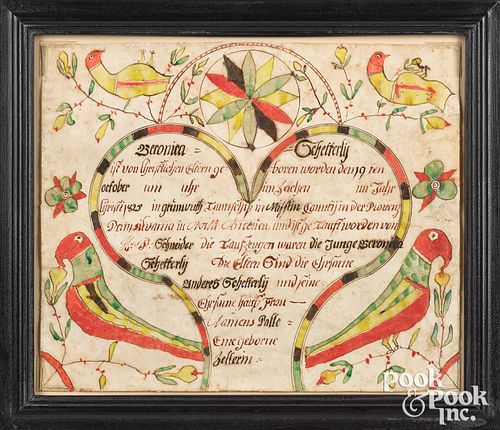 Veronica Schetterly
ist von Christlichen Eltern ge boren worden den 19 ten
october um uhr im zeichen im Jahr
Christi 1825 in grünwuth Taunschip in Mifflin Caunty in der Provenz
Pennsilvania in Nord America und ist ge Tauft worden von
Schneider die Taufzeugen waren die Junge Veronica
Schetterly Die Eltern Sind die Ehrsame
Anderes Schetterly und seine
Ehrsame haus Frau
Namens Polle
Eine geborne
Zellerin
Pook & Pook
Inc.